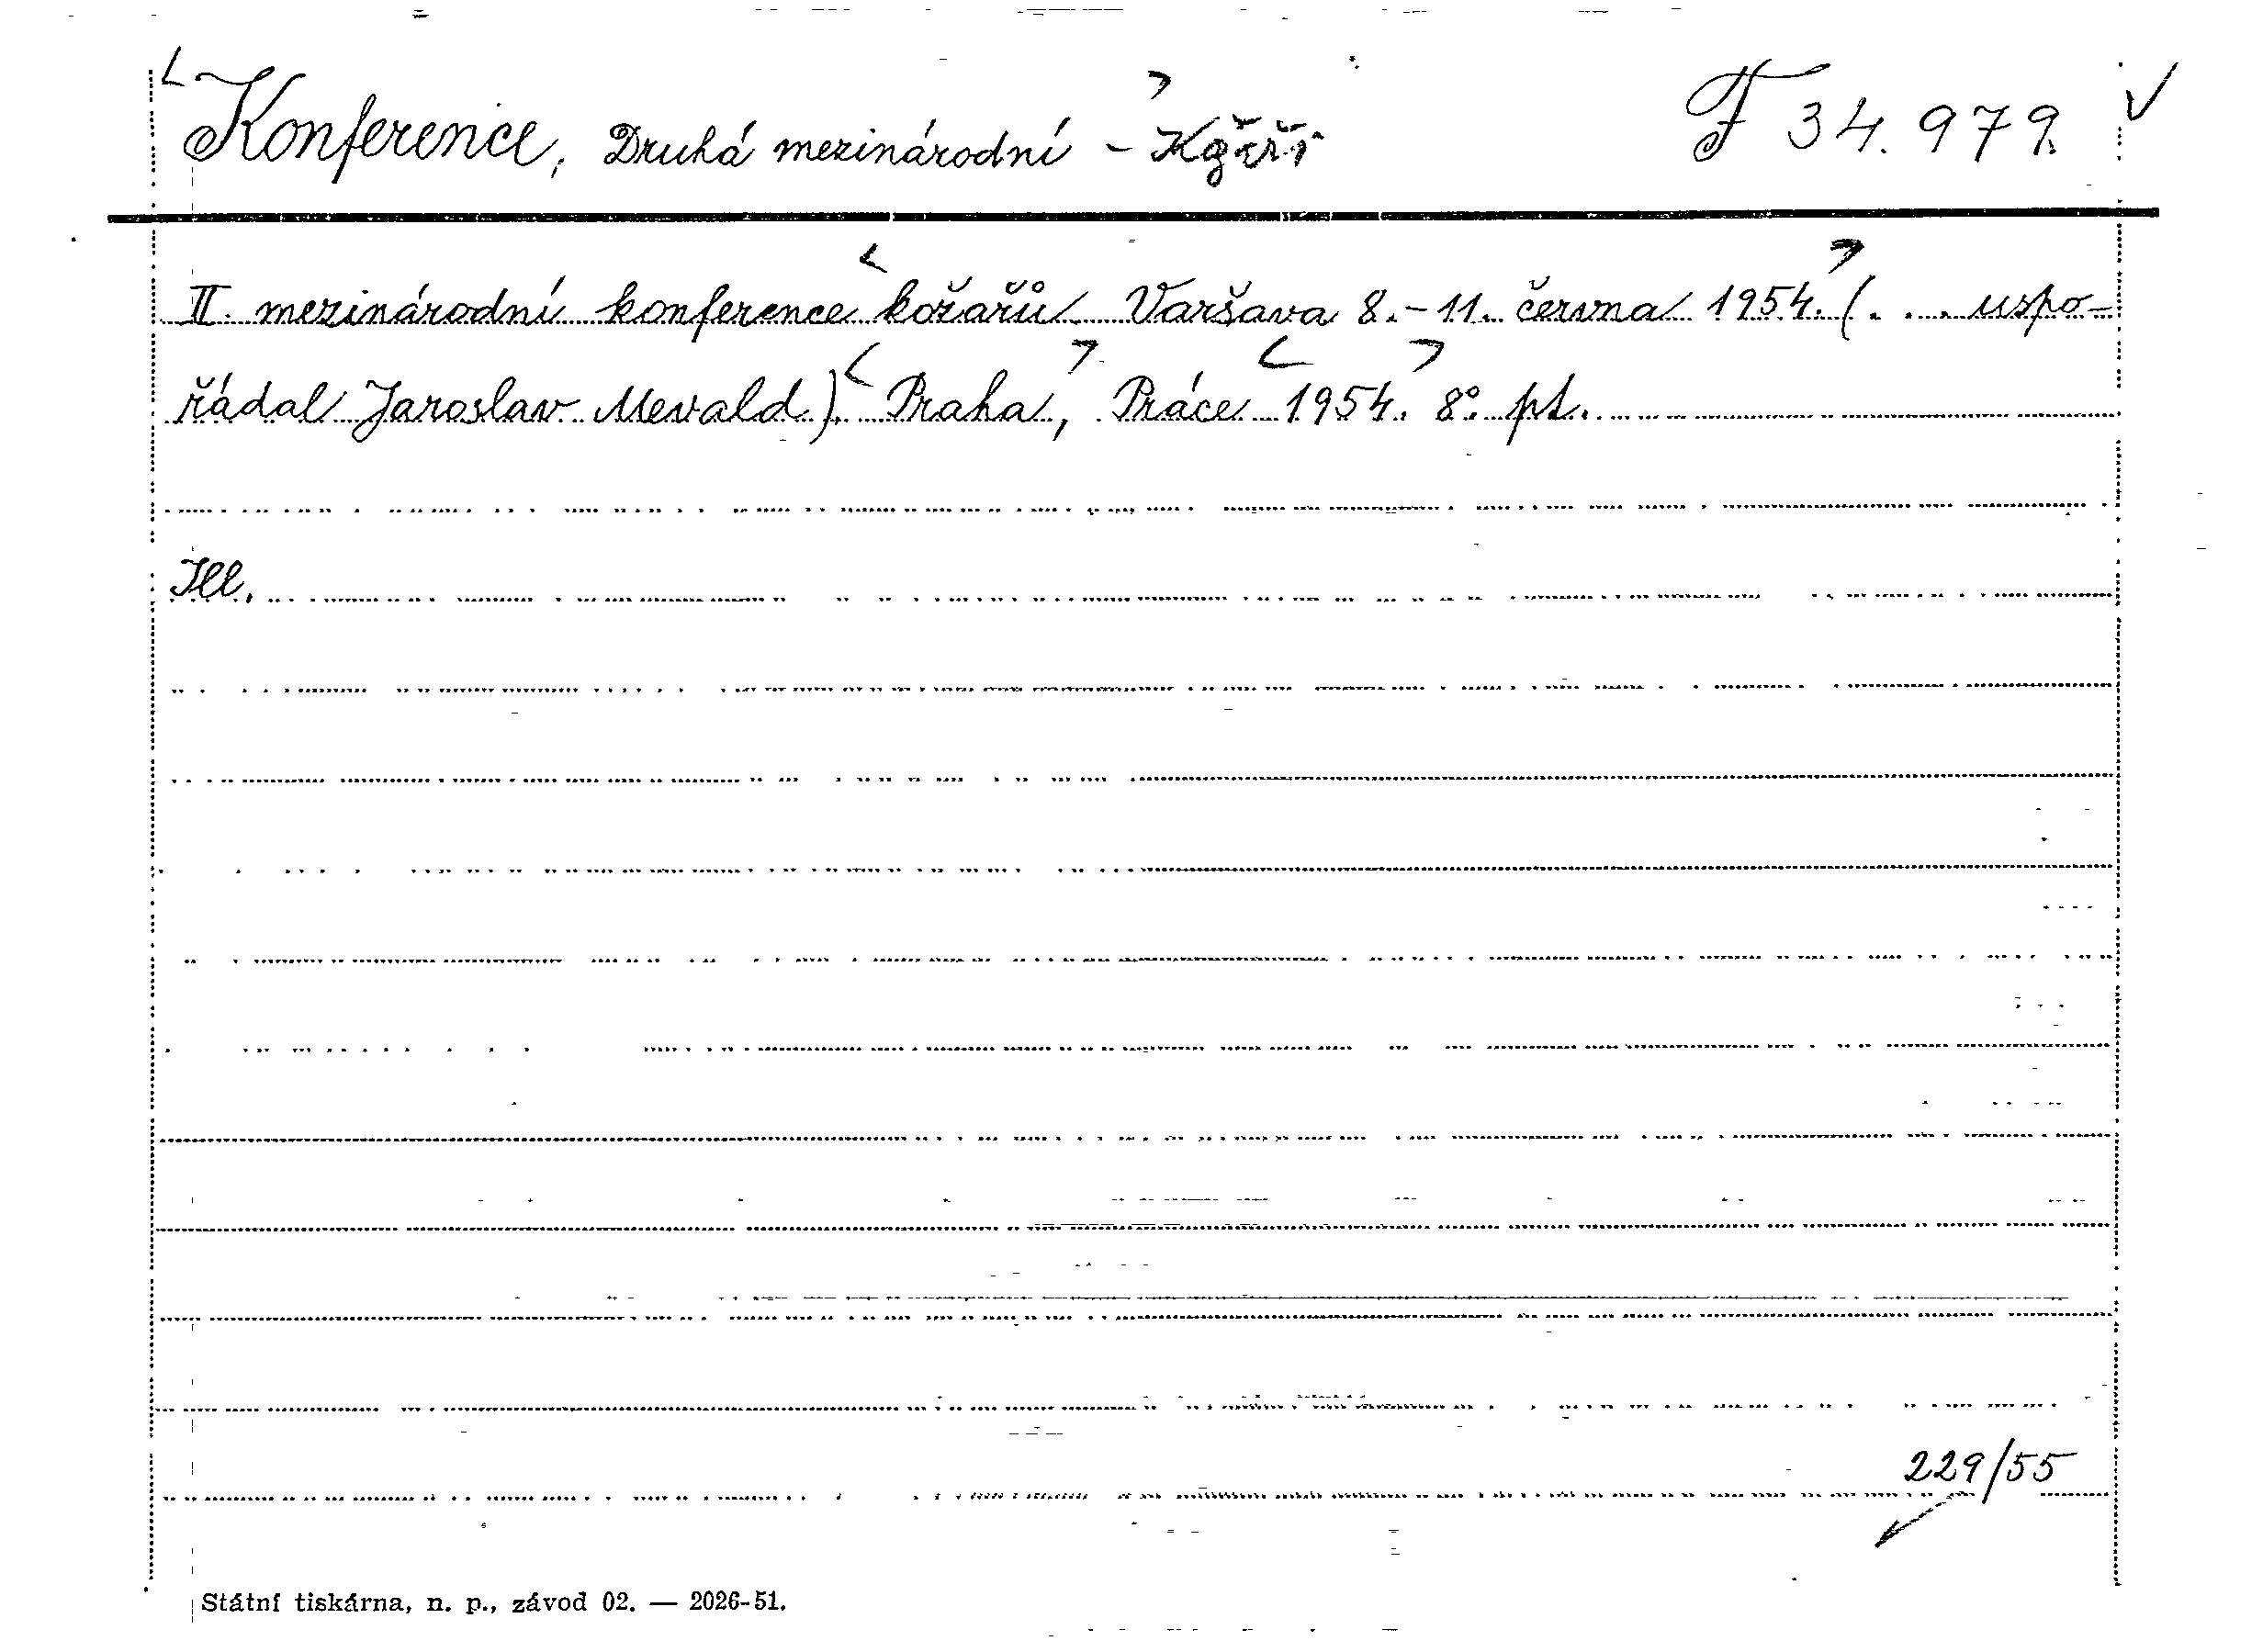 Konference, Druhá mezinárodní - F 34.979.
II. mezinárodní konference kožařů. Varšava 8.-11. června 1954. (. . . uspo-
řádal Jaroslav Mevald). Praha, Práce 1954. 8°. pt.
Ill.
229/55
Státní tiskárna, n. p., závod 02. — 2026-51.